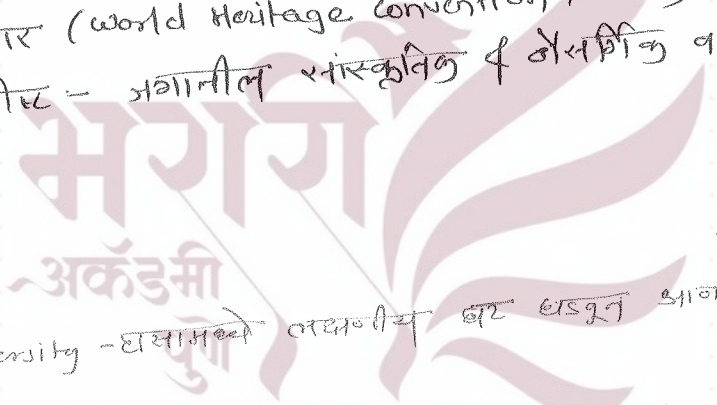 र (World Heritage Convention,
- जगातील सांस्कृतिक & नैसर्गिक व
भरारी
अकॅडमी
पुणे
ersity - घसामध्ये लक्षणीय घट घडवून आण